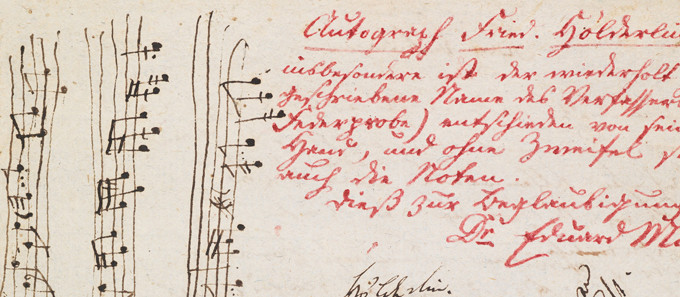 Autograph Fried. Hölderlin
insbesondere ist der wiederholt
geschriebene Name des Verfassers
Federprobe) entschieden von sei
Hand, und ohne Zweifel s
auch die Noten.
Dieß zur Beglaubigung
Dr. Eduard M
Hölderlin.